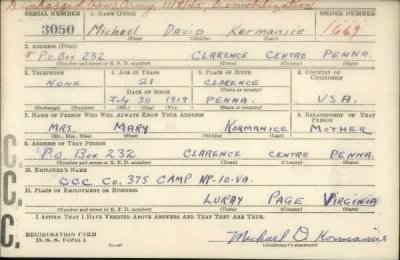 Discharged from Army 11/9/45, Demobilization
SERIAL NUMBER 1. NAME (Print) ORDER NUMBER
3050 Michael David Kormanice 1669
(First) (Middle) (Last)
2. ADDRESS (Print)
* P.O. Box 232 Clarence Centre Penna.
(Number and street or R. F. D. number) (Town) (County) (State)
3. TELEPHONE 4. AGE IN YEARS 5. PLACE OF BIRTH 6. COUNTRY OF CITIZENSHIP
None 21 Clarence
DATE OF BIRTH (Town or county)
July 30 1919 Penna. U.S.A.
(Exchange) (No.) (Mo.) (Day) (Yr.) (State or country)
7. NAME OF PERSON WHO WILL ALWAYS KNOW YOUR ADDRESS 8. RELATIONSHIP OF THAT PERSON
Mrs. Mary Kormanice Mother
(Mr., Mrs., Miss) (First) (Middle) (Last)
9. ADDRESS OF THAT PERSON
P.O. Box 232 Clarence Centre Penna.
(Number and street or R. F. D. number) (Town) (County) (State)
10. EMPLOYER'S NAME
CCC Co. 375 Camp NP-10-VA.
11. PLACE OF EMPLOYMENT OR BUSINESS
Luray Page Virginia
(Number and street or R. F. D. number) (Town) (County) (State)
I AFFIRM THAT I HAVE VERIFIED ABOVE ANSWERS AND THAT THEY ARE TRUE.
REGISTRATION CARD
D. S. S. Form 1
Michael D Kormanice
(Registrant's signature)
C.
C.
C.